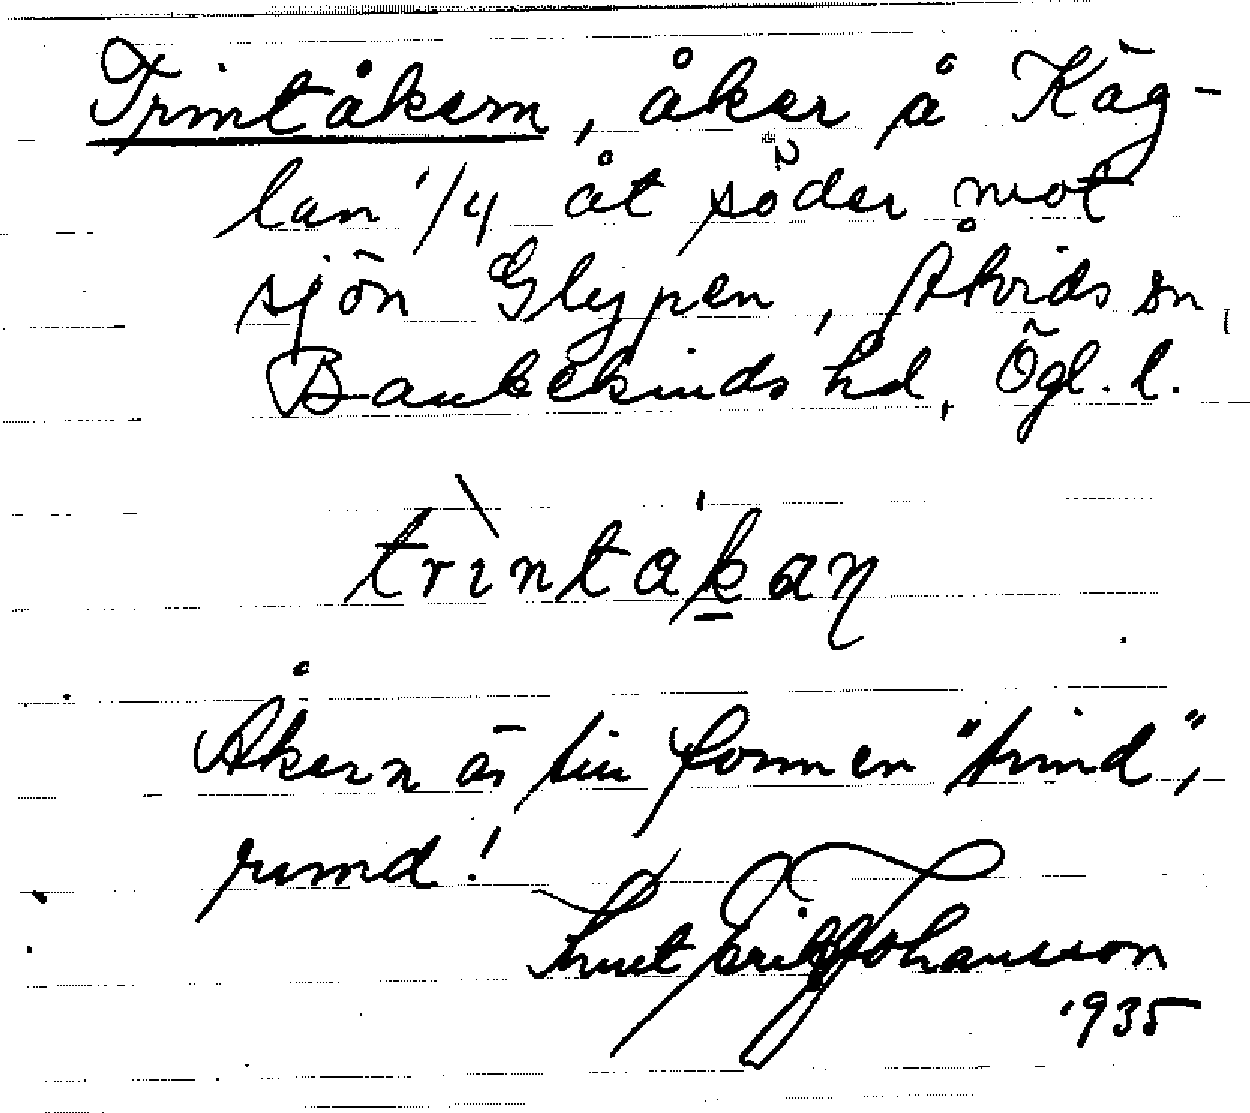 Trintåkern, åker å Käg-
lan 1/4 åt söder mot
sjön Glypen, Åtvids sn,
Bankekinds hd, Ögl. l.
trìntåkan
Åkern är till formen "trind",
rund!
Knut Erik Johansson
1935